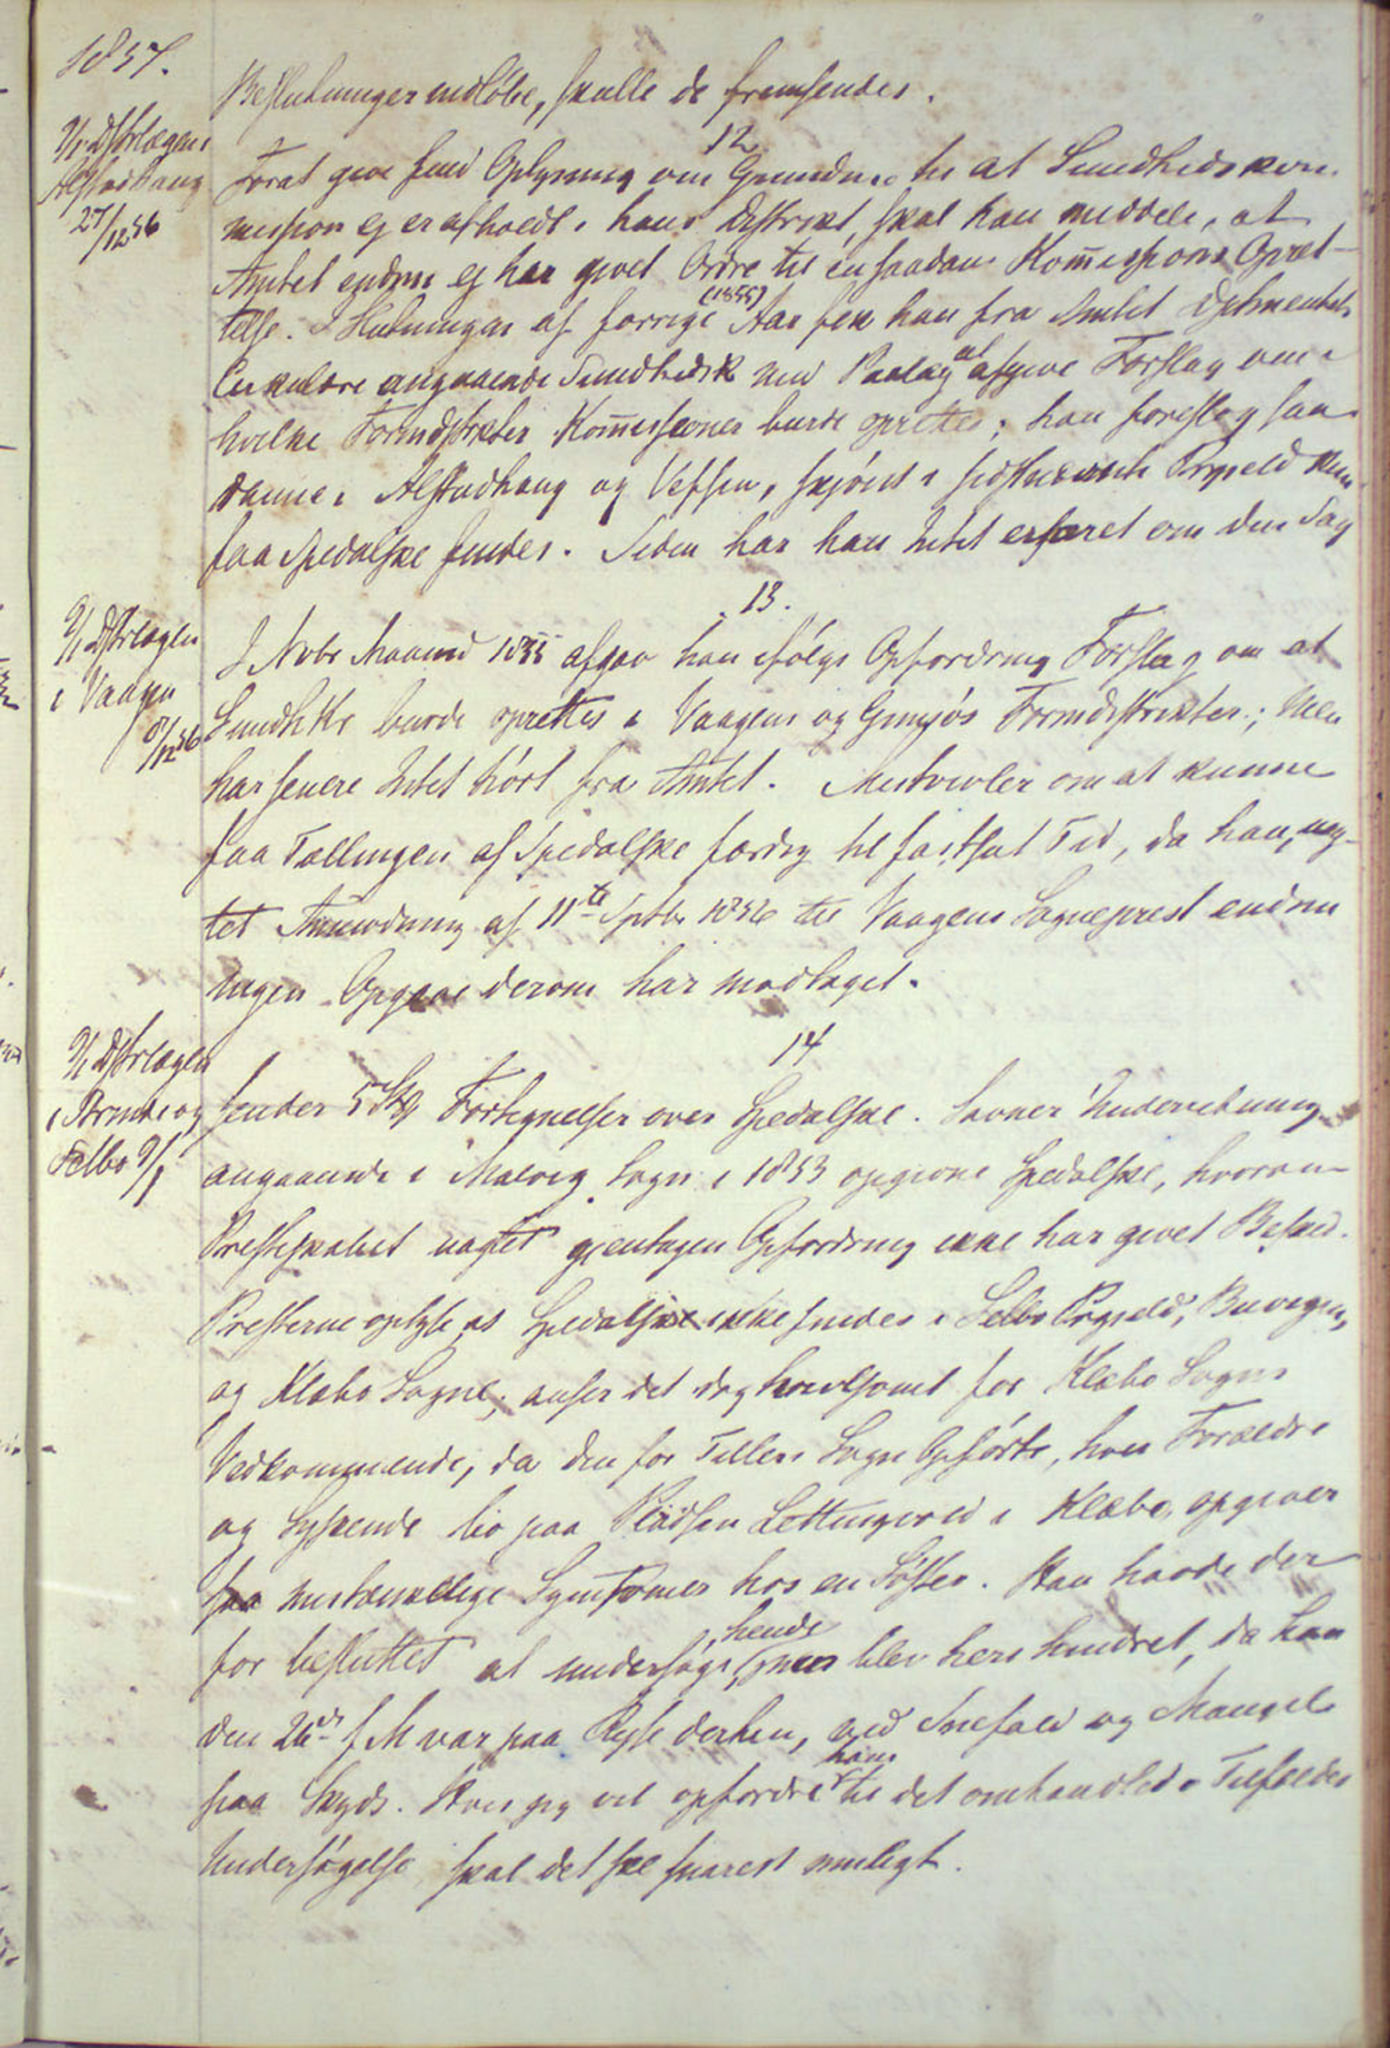 1857.
Beslutninger indløbe, skulle de fremsendes.
12
9/1 Dstrlægen i
Alstadhaug
27/12 56
Forat give fuld Oplysning om Grundene til at Sundhedskom-
mission ej er afholdt i hans Distrikt, skal han meddele, at
Amtet endnu ej har givet Ordre til en saadan Kom̅issions Opret-
telse. I Slutningen af forrige (1855) Aar fik han fra Amtet Dptmentets
Cirkulære angaaende Sundhedsk med Paalæg at afgive Forslag om i
hvilke Formdstrikter Kom̅issioner burde oprettes; han foreslog saa-
danne i Alstadhaug og Vefsen, skjönt i sidstnævnte Prgjeld kun
faa Spedalske findes. Siden har han Intet erfaret om den Sag
13.
9/1 Dstrlægen
i Vaagen
8/12 56
I Novbr Maaned 1855 afgav han ifölge Opfordring Forslag om at
Sundhkr burde oprettes i Vaagens og Gimsös Formdistrikter; Men
har senere Intet hört fra Amtet. Mistvivler om at kunne
faa Tællingen af Spedalske færdig til fastsat Tid, da han, uag-
tet Anmodning af 11te Septbr 1856 til Vaagens Sogneprest endnu
ingen Opgave derom har modtaget.
14
9/1 Dstrlægen
i Strinde og
Selbo 9/1
sender 5 Stk Fortegnelser over Spedalske. Savner Underretning
angaaende i Malvig Sogn i 1853 opgivne Spedalske, hvorom
Presteskabet uagtet gjentagen Opfordring ikke har givet Besked.
Presterne oplyse at Spedalske ikke findes i Selbo Prgjeld, Buvigen,
og Klæbo Sogne; anser det dog tvivlsomt for Klæbo Sogns
Vedkommende, da den for Tillers Sogn Opförte, hvis Forældre
og Syskende bo paa Pladsen i Klæbo, opgiver
faa mistænkelige Symtomer hos en Söster. Han havde der-
for besluttet at undersöge hende, men blev heri hindret, da han
den 26de f M var paa Reise derhen, ved Snefald og Mangel
paa Skyds. Hvis jeg vil opfordre ham til det omhandlede Tilfældes
Undersögelse, skal det ske snarest muligt.